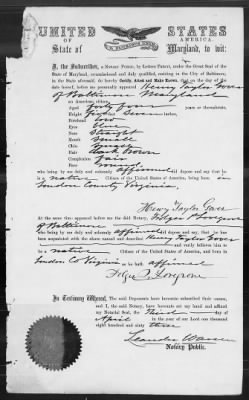 UNITED STATES
OF AMERICA.
State of Maryland, to wit:
I, the Subscriber, a Notary Public, by Letters Patent, under the Great Seal of the
State of Maryland, commissioned and duly qualified, residing in the City of Baltimore,
in the State aforesaid, do hereby Certify, Attest and Make Known, that on the day of the
date hereof, before me personally appeared Henry Taylor Gover
of Baltimore Maryland
an American citizen,
Aged forty four years or thereabouts,
Height five feet Seven inches,
Forehead low
Eyes
Nose Straight
Mouth Small
Chin
Hair Dark Brown
Complexion Fair
Face Round
who being by me duly and solemnly affirmed did depose and say that he
is a native Citizen of the United States of America, being born in
Loudon County Virginia,
Henry Taylor Gover
At the same time appeared before me the said Notary,
of Baltimore
who being by me duly and solemnly affirmed did depose and say, that he
is acquainted with the above named and described Henry Taylor Gover
and verily believes him to
be a native Citizen of the United States of America, and was born in
Loudon Co Virginia as he hath affirmed
In Testimony Whereof, The said Deponents have hereunto subscribed their names,
and I, the said Notary, have hereunto set my hand and affixed
my Notarial Seal, the Third day of
April in the year of our Lord one thousand
eight hundred and sixty three
Leander Warren
Notary Public.